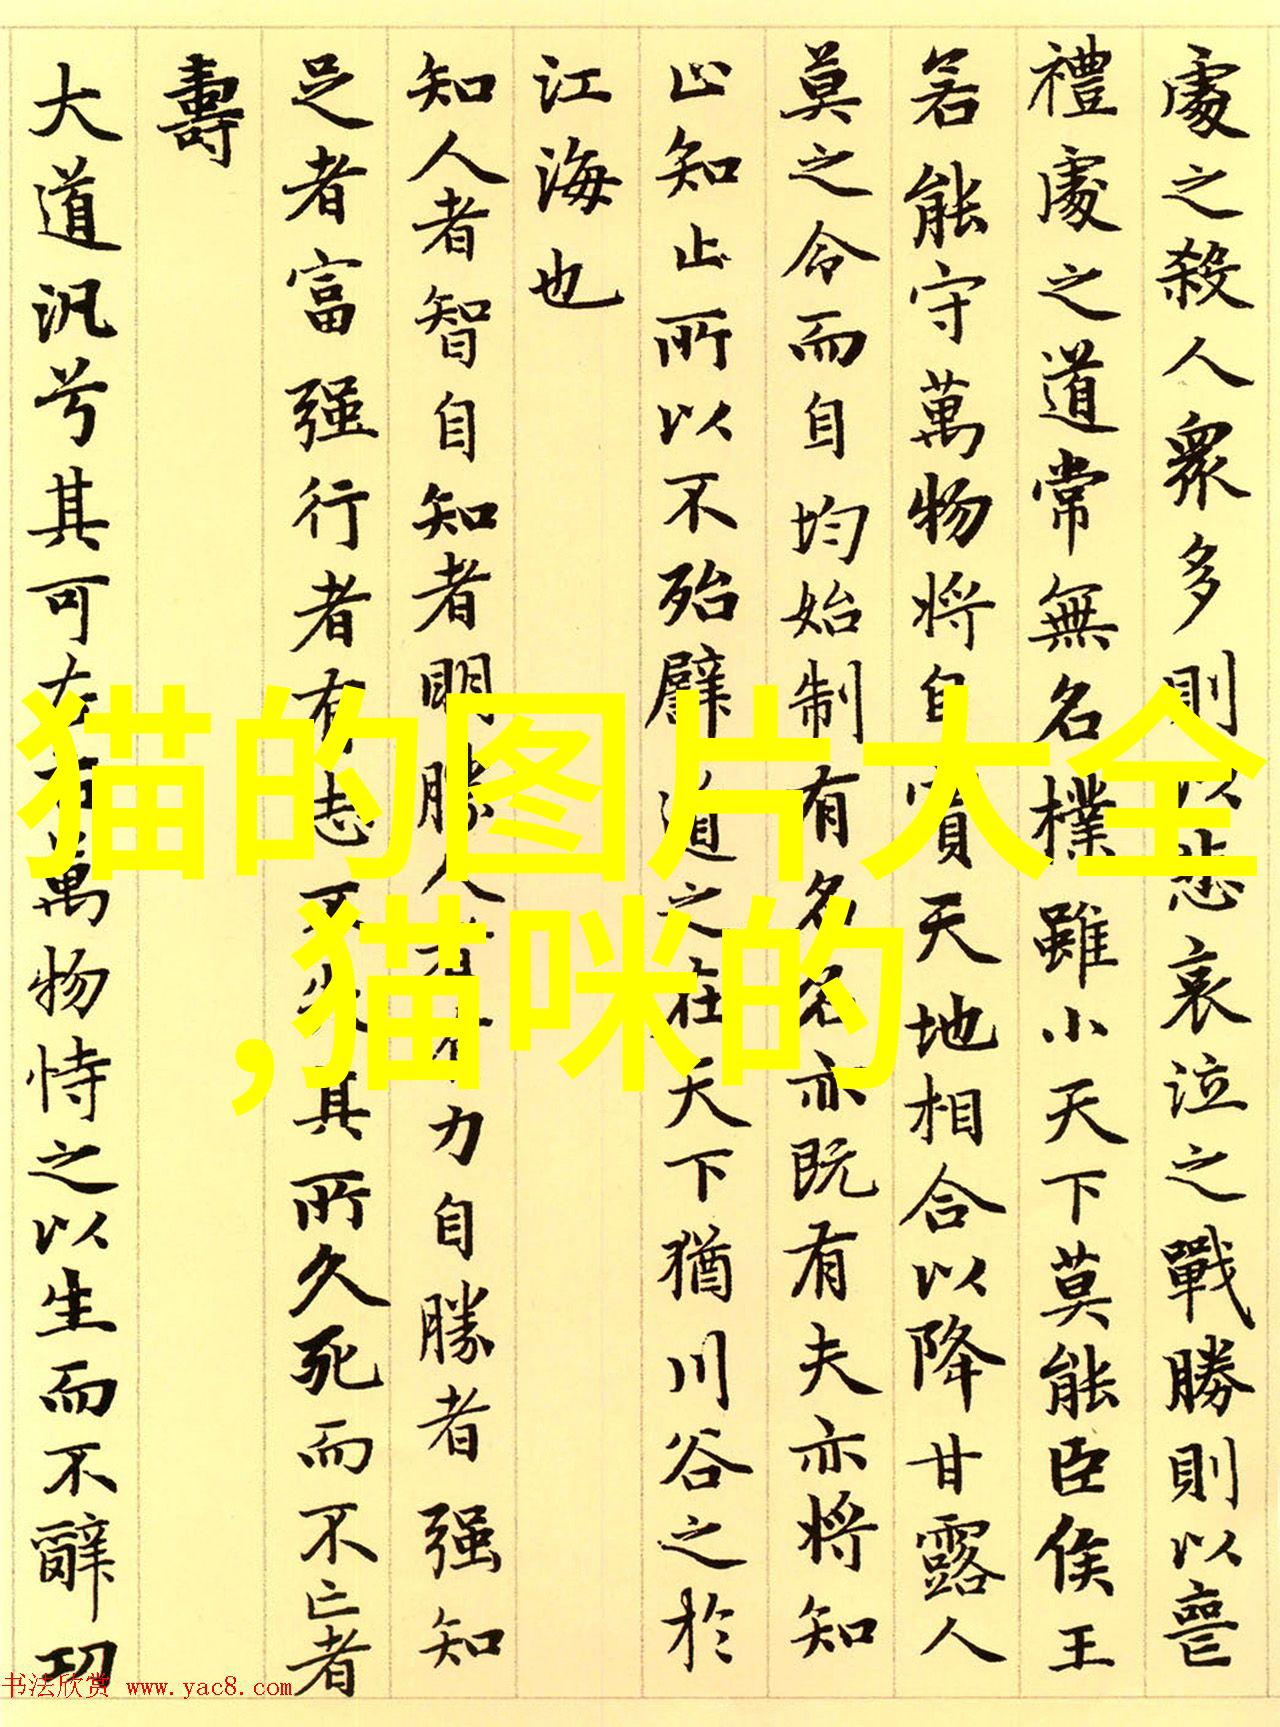 處之殺人眾多則以悲哀泣之戰勝則以喪
禮處之道常無名樸雖小天下莫能臣侯王
若能守萬物將自賓天地相合以降甘露人
莫之令而自均始制有名名亦既有夫亦將知
止知止所以不殆譬道之在天下猶川谷之於
江海也
知人者智自知者明勝人者有力自勝者强知
足者富强行者有志不失其所久死而不亡者
壽
大道汎兮其可左右萬物恃之以生而不辭功
猫的图片大全
,猫咪的
书法欣赏 www.yac8.com